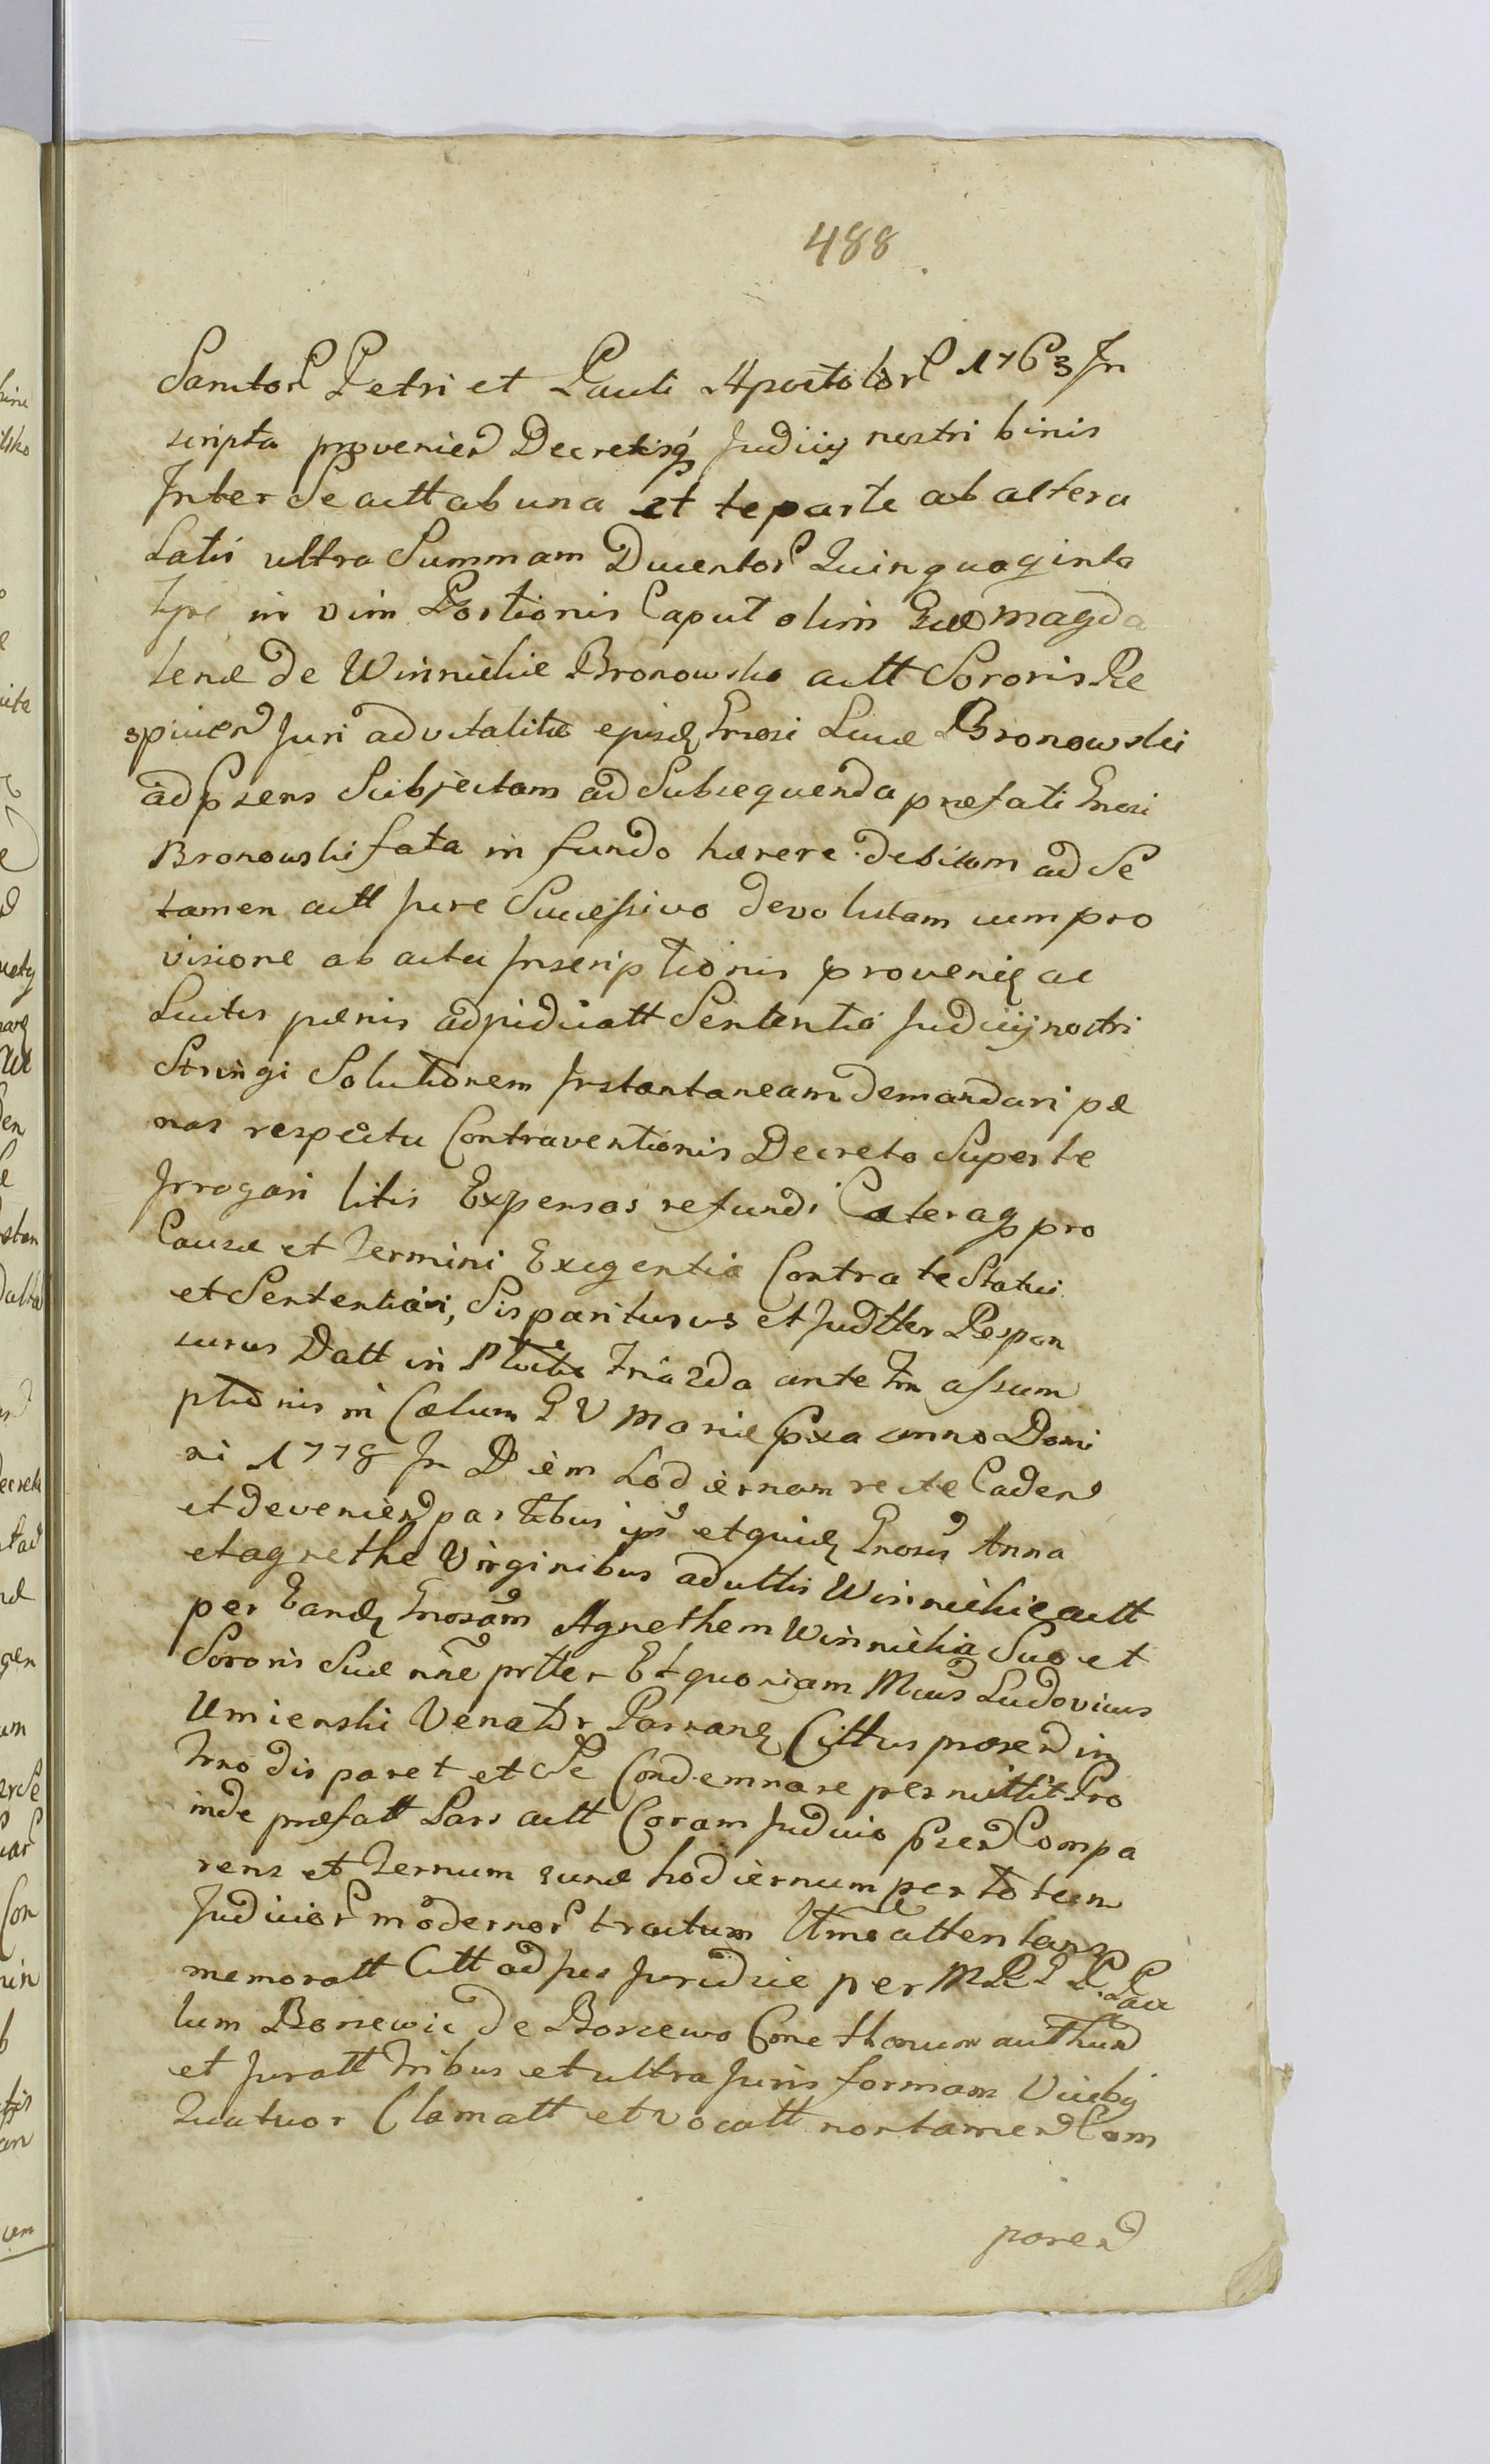 488
Sanctor Petri et Pauli Apostolor 1763 In
scripta provenien Decretisq Judicij nostri binis
Inter Se actt ab una et te parte ab altera
Latis ultra Summam Ducentor Quinquaginta
in vim Portionis Caput olim Magda
lenæ de Winnickie Bronowska actt Sororis Re
spicien Juri advitalitio ejusd Gnosi Lucæ Bronowski
ad psens Subjectam ad Subsequenda præfati Gnosi
Bronowski fata in fundo hærere debitam ad Se
tamen actt Jure Successivo devolutam cum pro
visione ab actu Inscriptionis proveniē ac
Luitis pænis adjudicatt Sententia Judicij nostri
Stringi Solutionem Instantaneam demandari pæ
nas respectu Contraventionis Decreto Super te
Irrogari litis Expensas refundi Cæteraq pro
Causæ et Termini Exigentia Contra te Statui
et Sententiari, Sis pariturus et Judtter Respon
surus Datt in fria 2da ante Fm assum
ptionis in Cælum B V Mariæ pxa anno Domi
ni 1778 In Diem hodiernam recte Caden
et devenien partibus ips et quid Gnosis Anna
et agnethe Virginibus adultis Winnickie actt
per Eand Gnosam Agnethem Winnicka Suo et
Sororis Suæ nne prtter Et quoniam Mcus Ludovicus
Umienski Venator Cittus prosen in
trno dis paret et Se Condemnare permittit Pro
inde præfatt Pars actt Coram Judicio psen Compa
rens et Ternum hodiernum per totum
Judicior modernor tractum attentans
memoratt Citt ad Jus Juridice per Pau
lum de Ministerialem authen
et Juratt tribus et ultra Juris formam Vicibq
Quatuor Clamatt et vocatt non tamen Com
paren